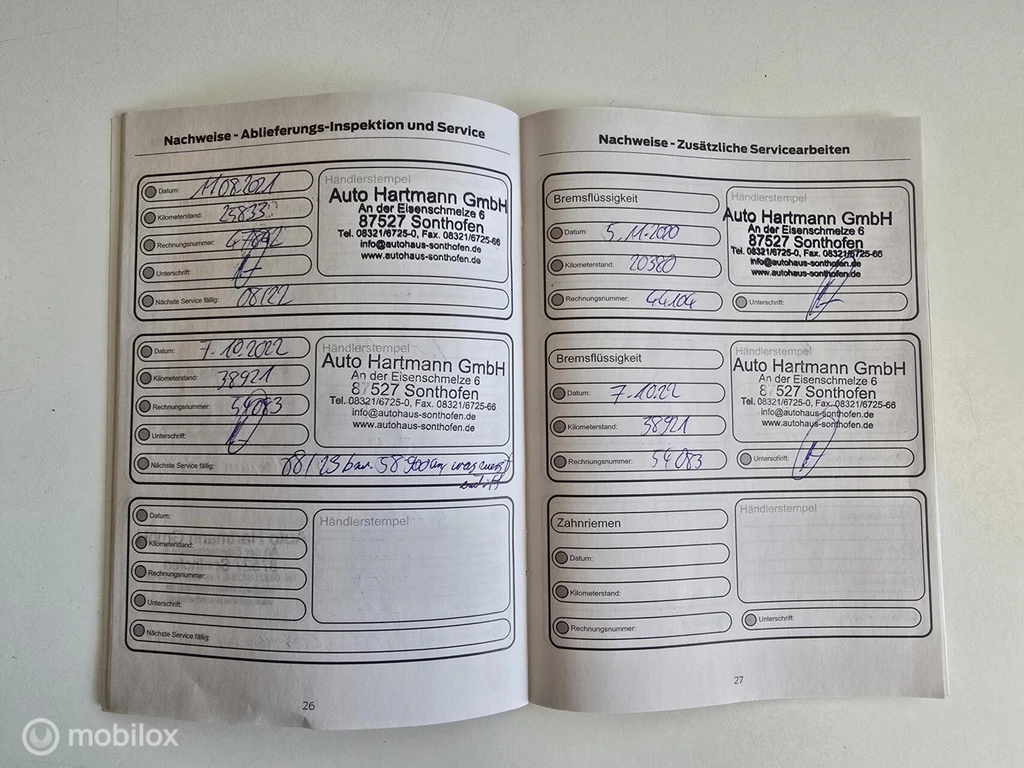 Nachweise - Ablieferungs-Inspektion und Service
Datum: 11.08.2021
Kilometerstand: 25833
Rechnungsnummer: 47892
Unterschrift:
Nächste Service fällig: 08/22
Händlerstempel
Auto Hartmann GmbH
An der Eisenschmelze 6
87527 Sonthofen
Tel. 08321/6725-0, Fax. 08321/6725-66
info@autohaus-sonthofen.de
www.autohaus-sonthofen.de
Datum: 7.10.2022
Kilometerstand: 38921
Rechnungsnummer: 54083
Unterschrift:
Nächste Service fällig: 08/23 58900
Händlerstempel
Auto Hartmann GmbH
An der Eisenschmelze 6
87527 Sonthofen
Tel. 08321/6725-0, Fax. 08321/6725-66
info@autohaus-sonthofen.de
www.autohaus-sonthofen.de
Datum:
Kilometerstand:
Rechnungsnummer:
Unterschrift:
Nächste Service fällig:
Händlerstempel
26
Nachweise - Zusätzliche Servicearbeiten
Bremsflüssigkeit
Datum: 5.11.2020
Kilometerstand: 20380
Rechnungsnummer: 44104
Händlerstempel
Auto Hartmann GmbH
An der Eisenschmelze 6
87527 Sonthofen
Tel. 08321/6725-0, Fax. 08321/6725-66
info@autohaus-sonthofen.de
www.autohaus-sonthofen.de
Unterschrift:
Bremsflüssigkeit
Datum: 7.10.22
Kilometerstand: 38921
Rechnungsnummer: 54083
Händlerstempel
Auto Hartmann GmbH
An der Eisenschmelze 6
87527 Sonthofen
Tel. 08321/6725-0, Fax. 08321/6725-66
info@autohaus-sonthofen.de
www.autohaus-sonthofen.de
Unterschrift:
Zahnriemen
Datum:
Kilometerstand:
Rechnungsnummer:
Händlerstempel
Unterschrift:
27
mobilox